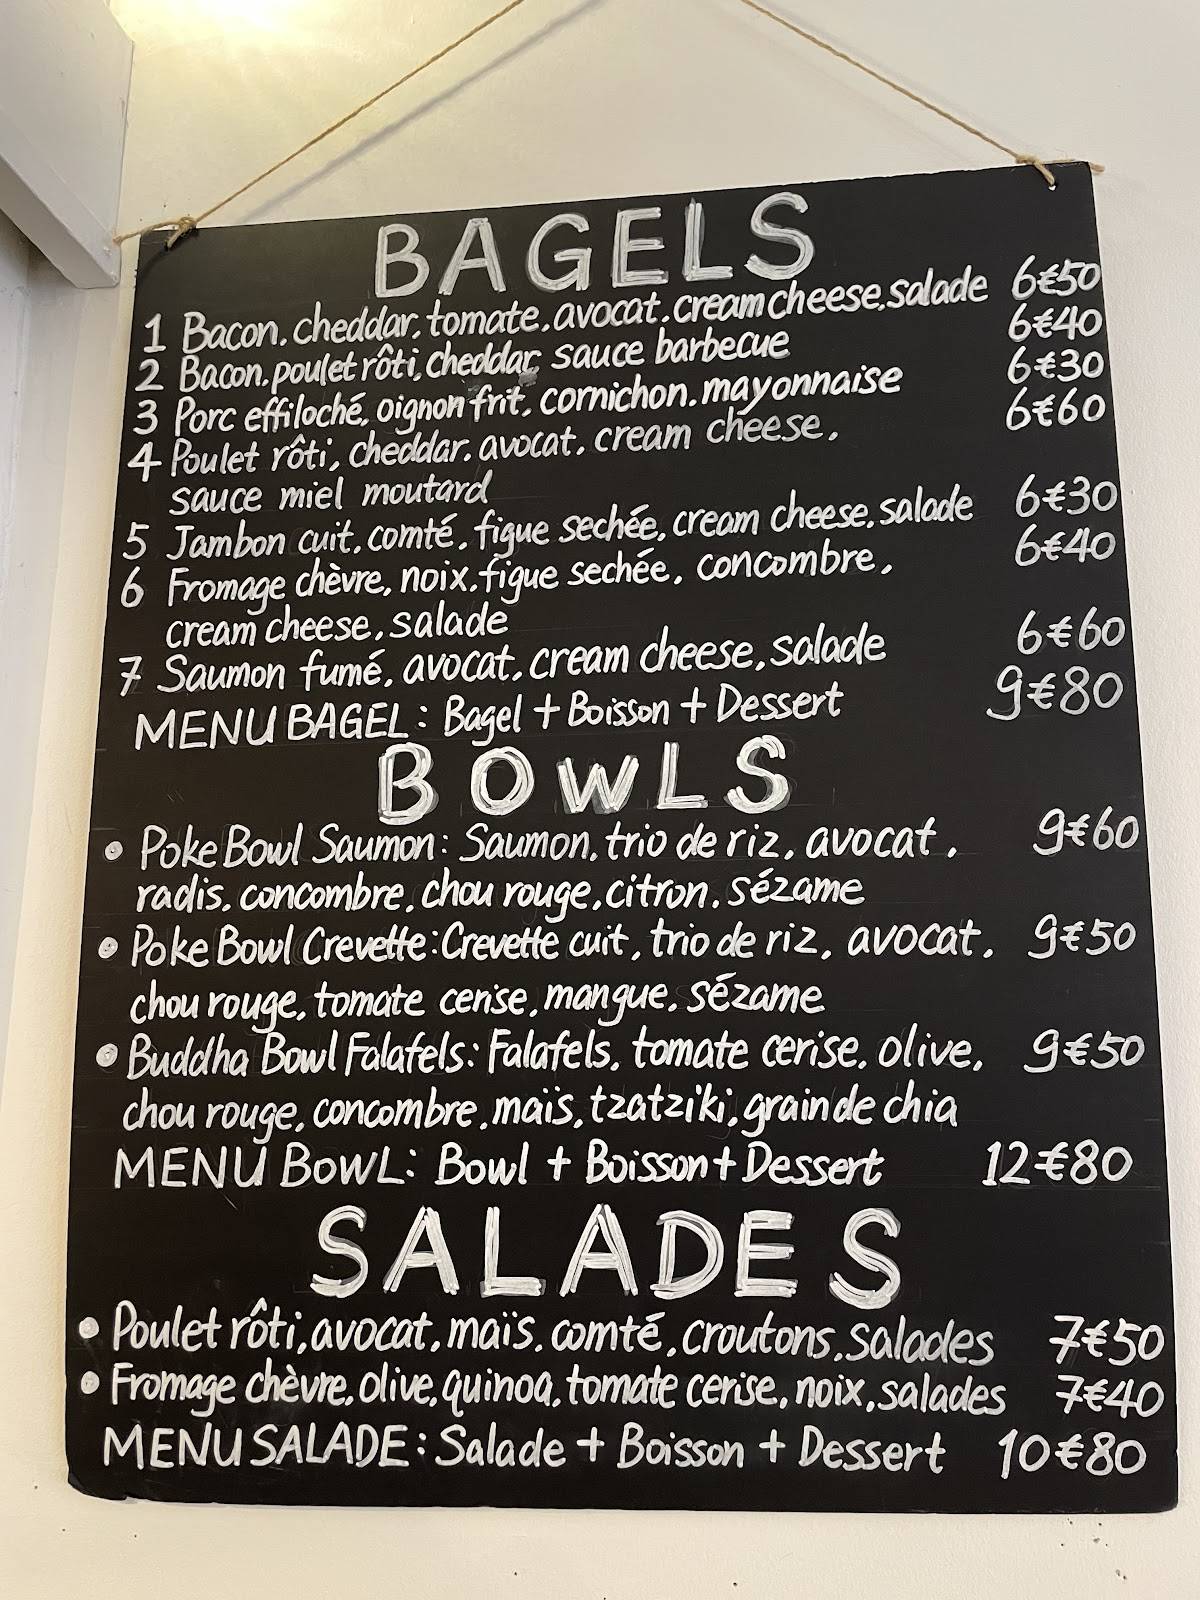 BAGELS
1 Bacon, cheddar, tomate, avocat, cream cheese, salade 6€50
2 Bacon, poulet rôti, cheddar, sauce barbecue 6€40
3 Porc effiloché, oignon frit, cornichon, mayonnaise 6€30
4 Poulet rôti, cheddar, avocat, cream cheese, 6€60
sauce miel moutard
5 Jambon cuit, comté, figue sechée, cream cheese, salade 6€30
6 Fromage chèvre, noix, figue sechée, concombre, 6€40
cream cheese, salade
7 Saumon fumé, avocat, cream cheese, salade 6€60
MENU BAGEL: Bagel + Boisson + Dessert 9€80
BOWLS
• Poke Bowl Saumon: Saumon, trio de riz, avocat, 9€60
radis, concombre, chou rouge, citron, sézame
• Poke Bowl Crevette: Crevette cuit, trio de riz, avocat, 9€50
chou rouge, tomate cerise, mangue, sézame
• Buddha Bowl Falafels: Falafels, tomate cerise, olive, 9€50
chou rouge, concombre, maïs, tzatziki, grain de chia
MENU BOWL: Bowl + Boisson + Dessert 12€80
SALADES
• Poulet rôti, avocat, maïs, comté, croutons, salades 7€50
• Fromage chèvre, olive, quinoa, tomate cerise, noix, salades 7€40
MENU SALADE: Salade + Boisson + Dessert 10€80